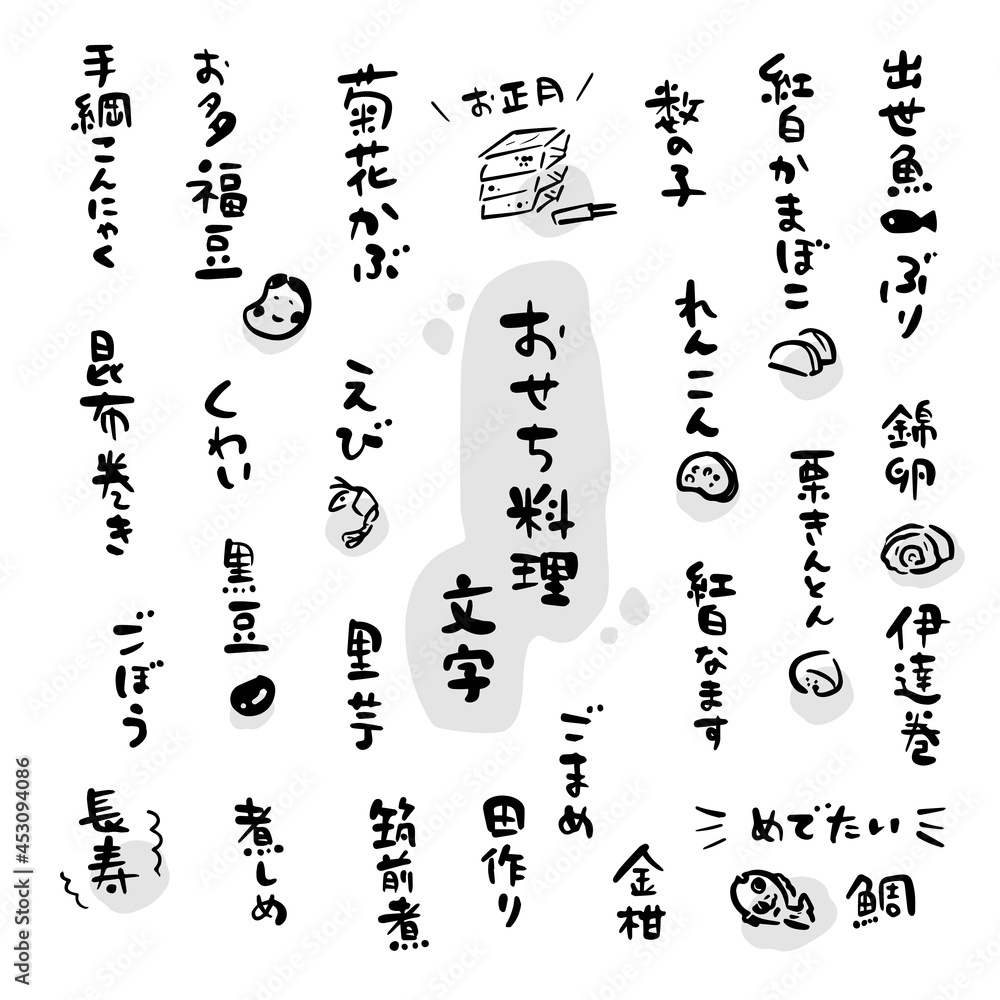 出世魚
ぶり
錦卵
伊達巻
紅白かまぼこ
栗きんとん
数の子
れんこん
紅白なます
お正月
おせち料理
文字
菊花かぶ
えび
里芋
お多福豆
くわい
黒豆
手綱こんにゃく
昆布巻き
ごぼう
めでたい
鯛
金柑
ごまめ
田作り
筑前煮
煮しめ
長寿
Adobe Stock | #453094086
Adobe Stock